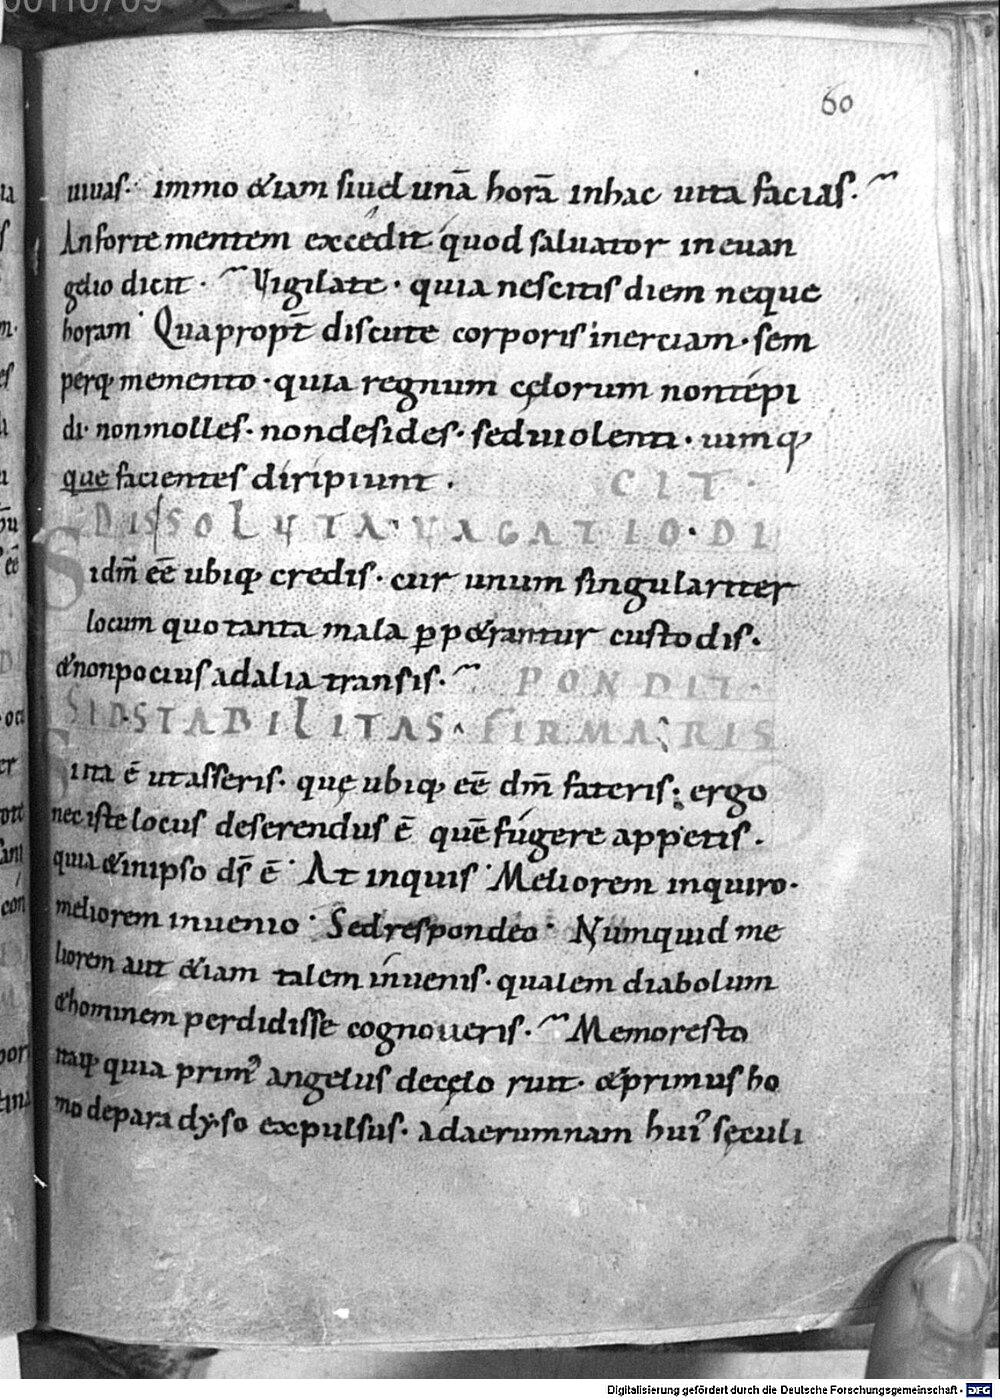 00110709
60
uiuas· immo &iam siuel unā horā inhac uita facias·
An forte mentem excedit quod saluator in euan
gelio dicit· Vigilate· quia nescitis diem neque
horam· Quapropt̄ discute corporis inerciam· sem
perq; memento· quia regnum cęlorum non tepi
di· non molles· non desides· sed uiolenti· uimq;
que facientes diripiunt· CIT·
DISSOLUTA· VAGATIO· DI
Sidm̄ eē ubiq; credis· cur unum singulariter
locum quo tanta mala p̱p&rantur custodis·
& non pocius ad alia transis· PONDIT·
SID STABILITAS· FIRMA· RIS
Si ita ē ut asseris· quę ubiq; eē dm̄ fateris; ergo
nec iste locus deserendus ē quē fugere appetis·
quia & in ipso ds̄ ē· At inquis· Meliorem inquiro·
meliorem inuenio· Sed respondeo· Numquid me
liorem aut &iam talem inuenis· qualem diabolum
& hominem perdidisse cognoueris· Memor esto
itaq; quia prim᾽ angelus de cęlo ruit· & primus ho
mo de paradyso expulsus· ad aerumnam hui᾽ sęculi
Digitalisierung gefördert durch die Deutsche Forschungsgemeinschaft - DFG